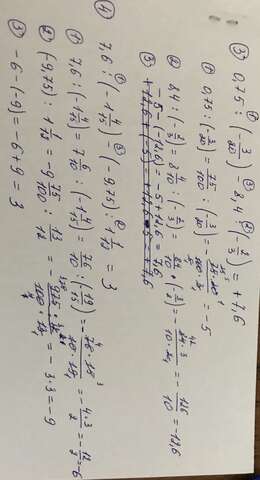 3) 0,75 : (-3/20) - 8,4 : (-2/3) = +7,6
1) 0,75 : (-3/20) = 75/100 : (-3/20) = - 75·20/100·3 = -5
2) 8,4 : (-2/3) = 8 4/10 : (-2/3) = 84/10 · (-3/2) = - 84·3/10·2 = - 126/10 = -12,6
3) -5-(-12,6) = -5+12,6 = 7,6
4) 7,6 : (-1 4/15) - (-9,75) : 1 1/12 = 3
1) 7,6 : (-1 4/15) = 7 6/10 : (-1 4/15) = 76/10 · (-15/19) = - 76·15/10·19 = - 4·3/2 = - 12/2 = -6
2) (-9,75) : 1 1/12 = -9 75/100 : 13/12 = - 975·12/100·13 = -3·3 = -9
3) -6-(-9) = -6+9 = 3